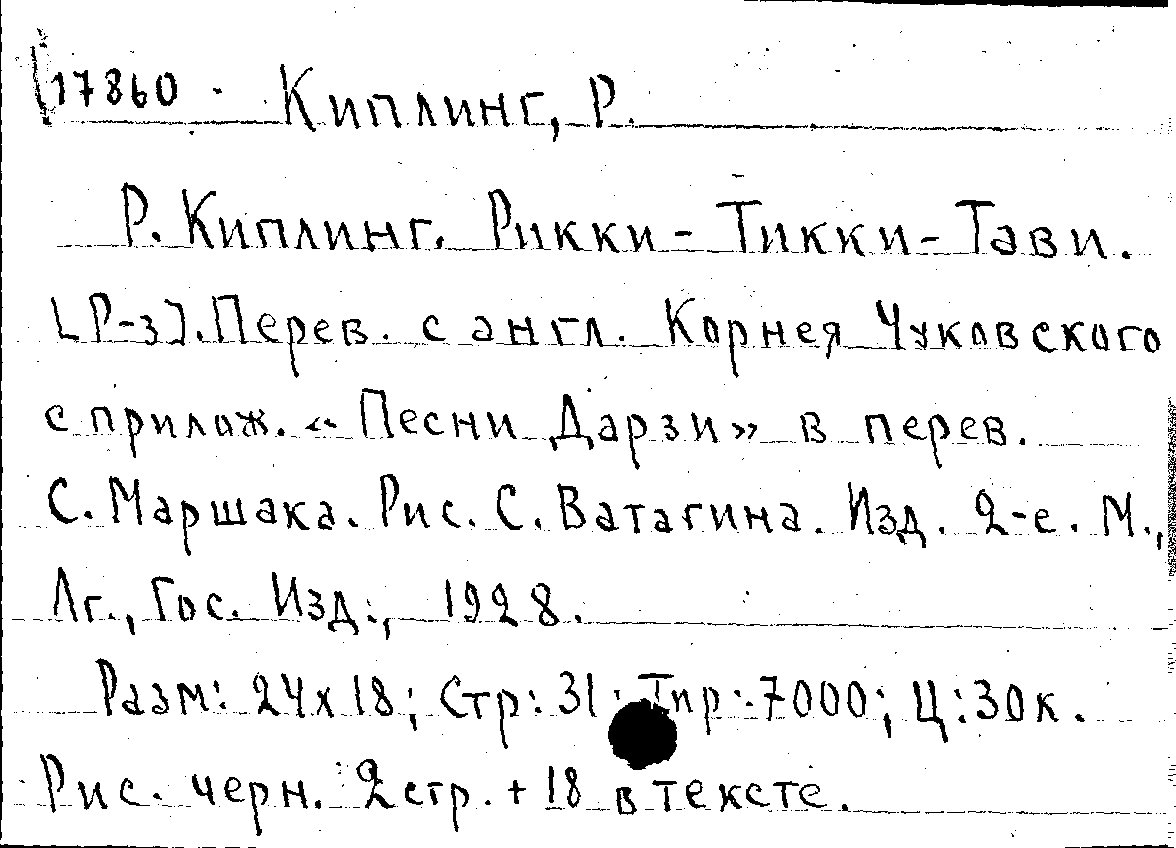 17860. Киплинг, Р.
Р. Киплинг. Рикки-Тикки-Тави.
[Р-з]. Перев. с англ. Корнея Чуковского
с прилож. «Песни Дарзи» в перев.
С. Маршака. Рис. С. Ватагина. Изд. 2-е. М.,
Лг., Гос. Изд., 1928.
Разм: 24х18; Стр: 31; Тир: 7000; Ц: 30к.
Рис. черн. 2 стр. + 18 в тексте.